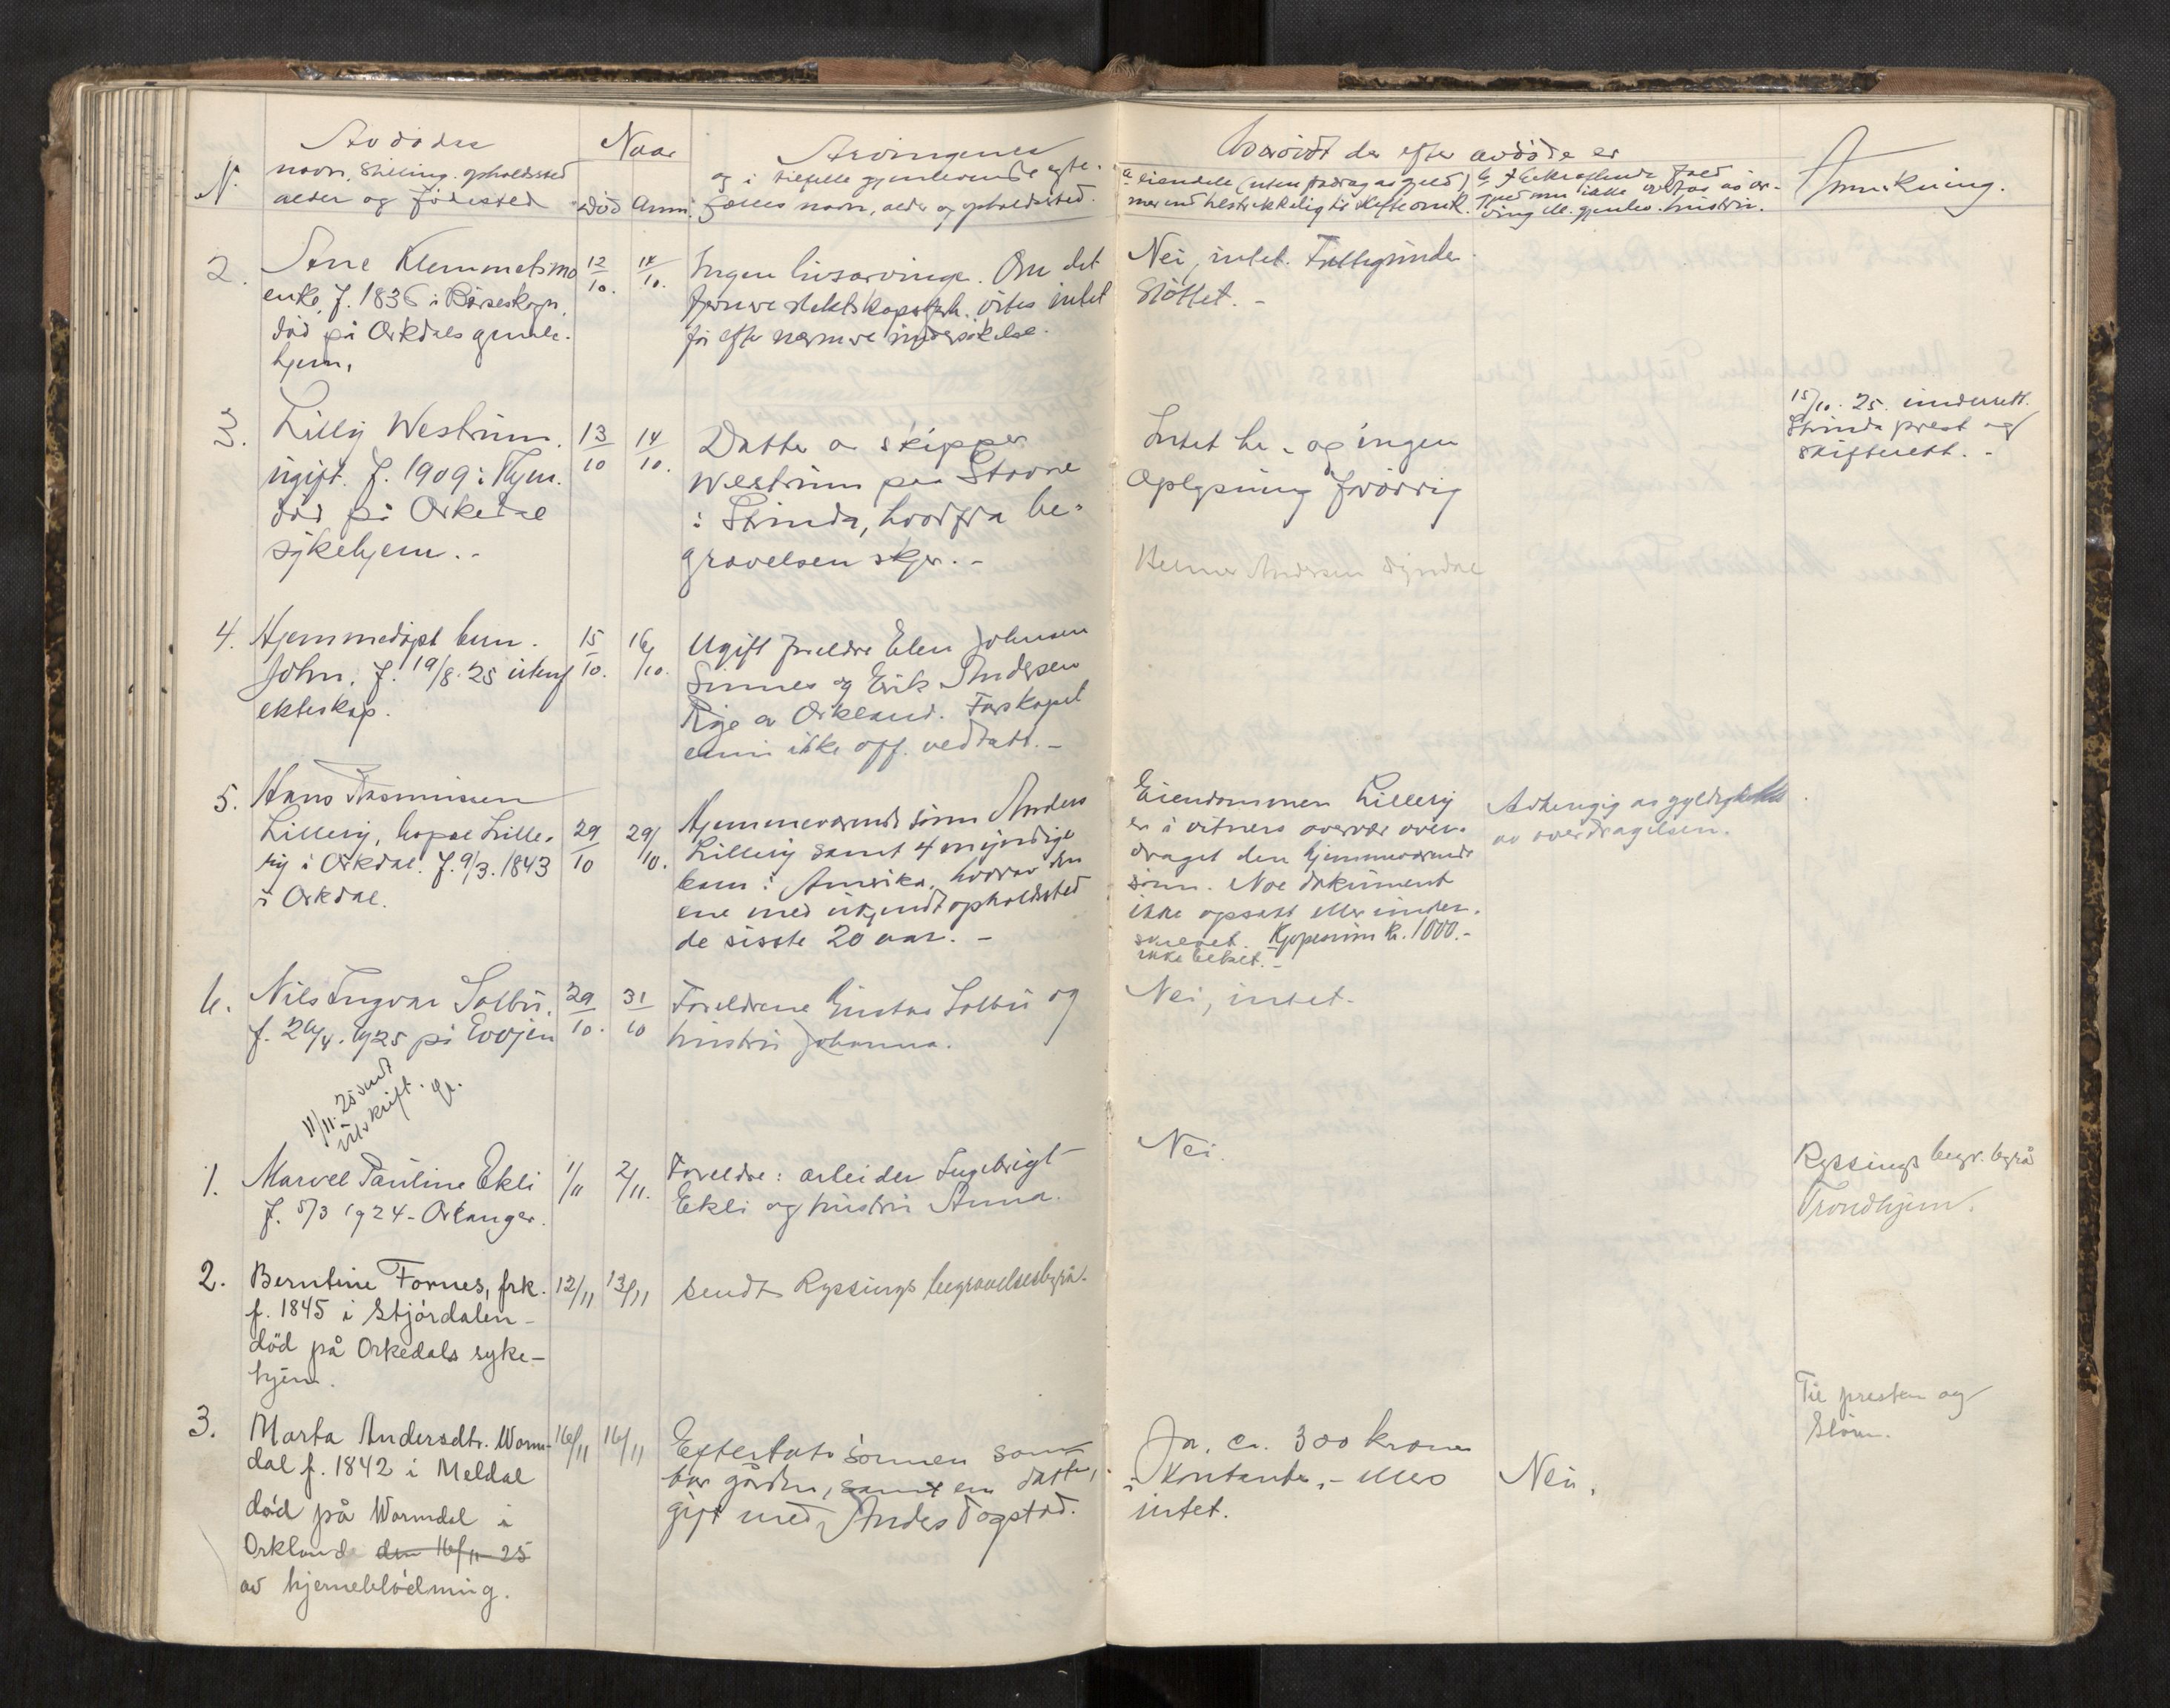 Avdødes
navn, stilling, opholdssted
alder og fødested
N.
Naar
Død Anm.
Arvingenes
og i tilfelle gjenlevende egte-
fælles navn, alder og opholdssted.
Hvorvidt der efter avdøde er
eiendele (uten fradrag av gjeld)
mer end tilstrekkelig til
gjeld som ikke overtas av ar-
ving el. gjenlev. hustru.
Anmerkning.
2.
Ane Klemmetsmo
enke, f. 1836 i Børseskogn,
død på Orkdals gamle-
hjem.
12/10.
14/10.
Ingen livsarvinge. Om det
fjernere slektskapsforh. vites intet
før efter nærmere undersøkelse.
Nei, intet. Fattigunder
støttet. -
3.
Lilly Westrum.
ugift. f. 1909 i Thjem.
død på Orkedal
sykehjem. -
13/10
14/10.
Datter av skipper
Westrum paa Stavne
i Strinda, hvorfra be-
gravelsen skjer. -
Intet her og ingen
Oplysning forøvrig
15/10. 25. underrett.
Strinda prest og
skifterett. -
Helmer Andersen
4.
Hjemmedøpt barn.
John, f. 19/8. 25 utenf
ekteskap.
15/10.
16/10.
Ugift foreldre Elen Johnsen
Sinnes og Erik Andersen
av Orkland. Farskapet
ennu ikke off. vedtatt. -
5.
Hans Rasmussen
Lillery, kapal Lille-
ry i Orkdal. f. 9/3. 1843
i Orkdal.
29/10
29/10.
Hjemmeværende sønn Anders
Lillery samt 4 myndige
barn i Amerika, hvorav den
ene med ukjendt opholdssted
de sisste 20 aar. -
Eiendommen Lillery
er i vitners overvær over-
draget den hjemmeværende
sønn. Noe dokument
ikke opsatt eller under-
skrevet. Kjøpesum kr. 1000.-
ikke betalt. -
Avhengig av gyldigheten
av overdragelsen.
6.
Nils Ingvar Solbu,
f. 26/4. 1925 på Evjen
29/10.
31/10
Foreldrene Gustav Solbu og
hustru Johanna.
Nei, intet.
11/11. 25 sendt
utskrift.
1.
Marvel Pauline Ekli
f. 5/3 1924 - Orkanger.
1/11
2/11.
Foreldre: arbeider Ingebrigt
Ekli og hustru Anna.
Nei.
Ryssings begr. byrå
Trondhjem.
2.
Berntine Fornes, frk.
f. 1845 i Stjørdalen -
død på Orkedals syke-
hjem.
12/11
13/11
sendt Ryssings begravelsesbyrå.
3.
Marta Andersdtr. Worm-
dal f. 1842 i Meldal
død på Wormdal i
Orkland den 16/11 25
av hjerneblødning.
16/11
16/11
Efterlatt sønnen som
har gården, samt en datter,
gift med Anders Togstad.
Ja, ca. 300 kroner
i Kontanter, - ellers
intet.
Nei.
Til presten og